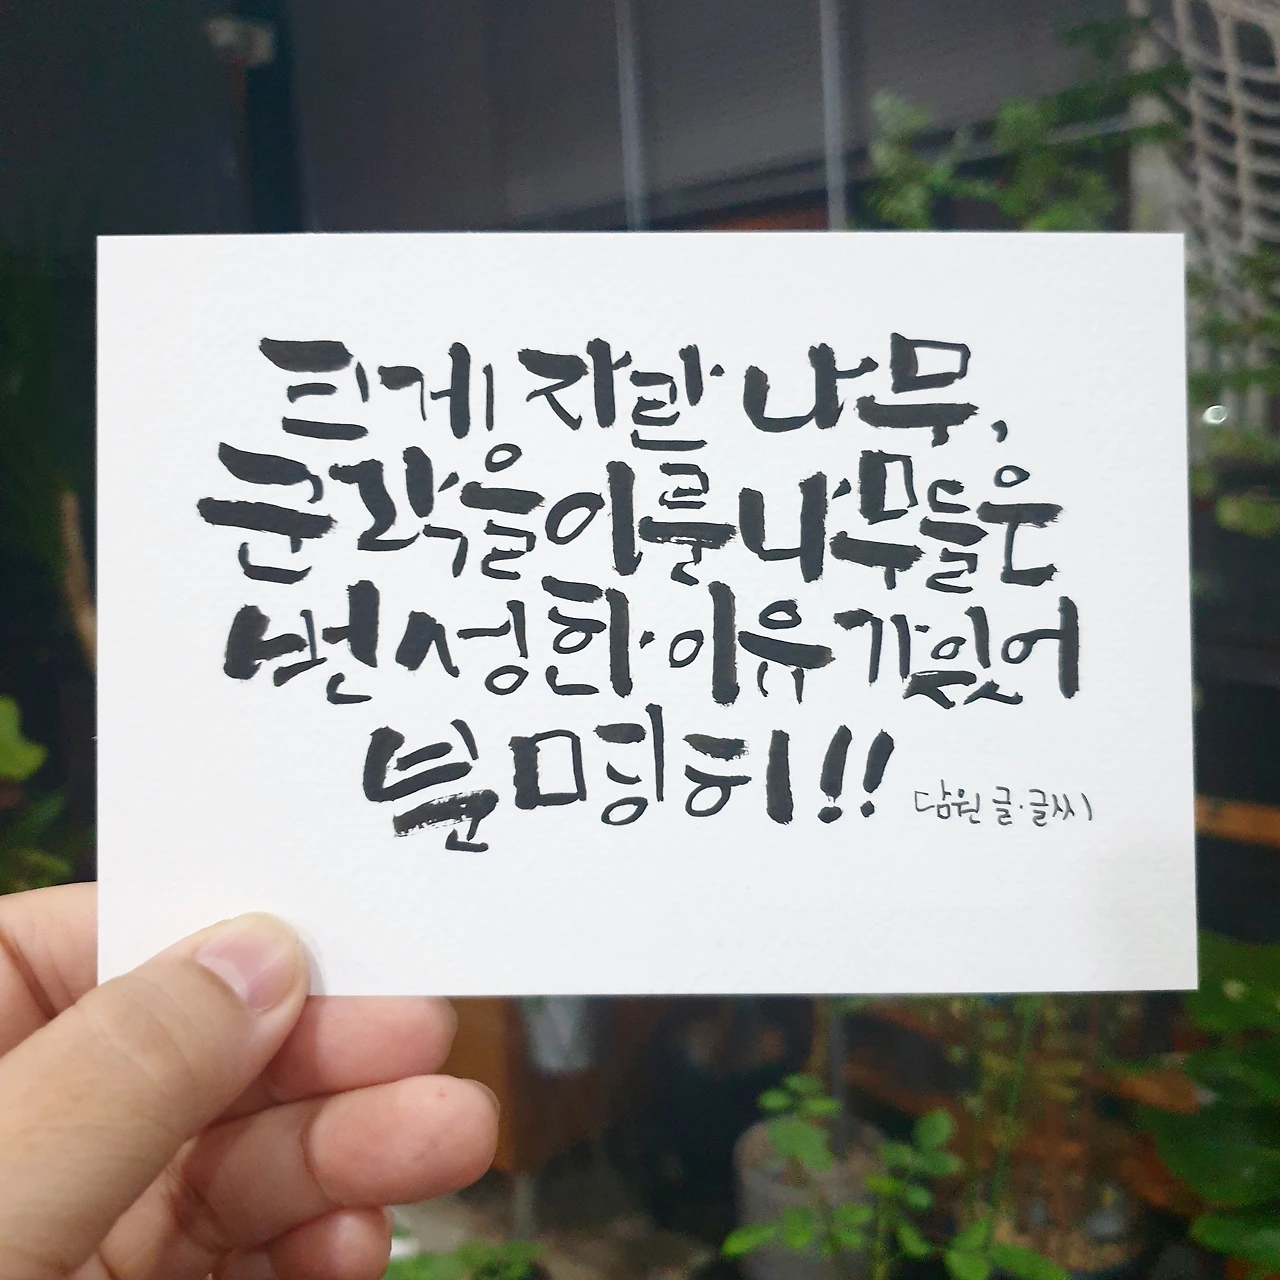 크게 자란 나무,
군락을이룬나무들은
번성한 이유가있어
분명히!!
담원 글·글씨